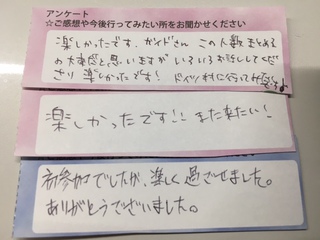 アンケート
☆ご感想や今後行ってみたい所をお聞かせください
楽しかったです。ガイドさん この人数まとめる
の大変だと思いますが いろいろお話ししてくだ
さり 楽しかったです! ドイツ村に行ってみたい
です♪
楽しかったです!! また来たい!
初参加でしたが、楽しく過ごせました。
ありがとうございました。